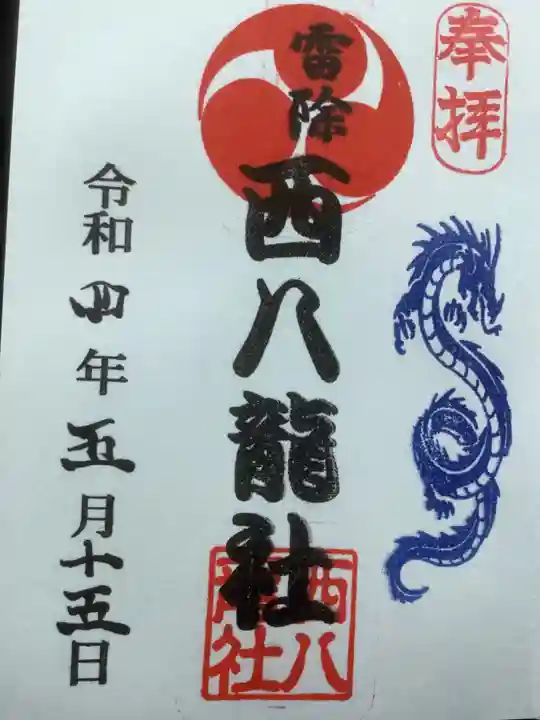 奉拝
雷除
西八龍社
西八
龍社
令和四年五月十五日